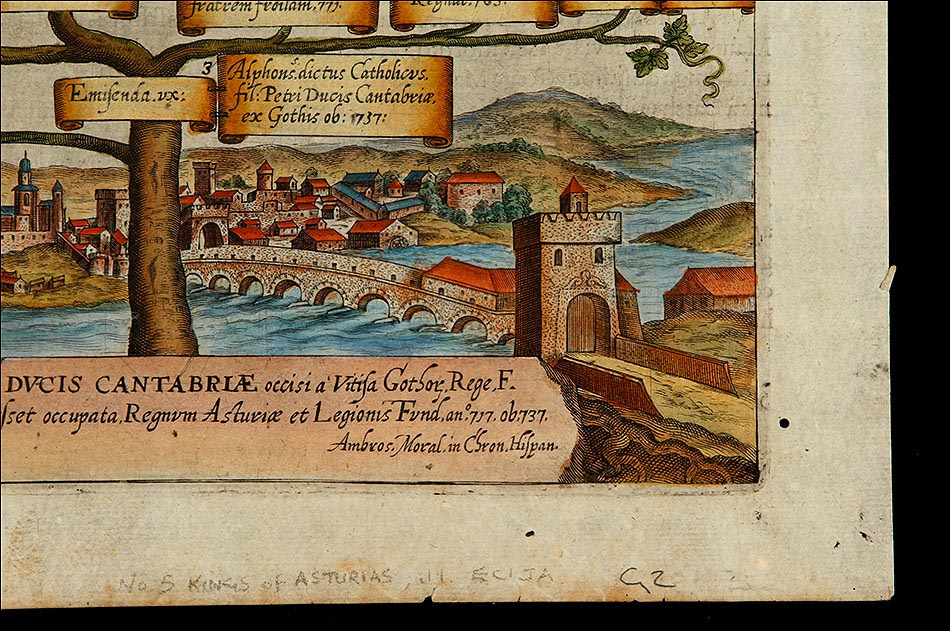 fratrem froilam. 771.
Emisenda. ux:
3
Alphons. dictus Catholicvs.
fil: Petri Ducis Cantabriæ,
ex Gothis ob: 737:
DVCIS CANTABRIÆ occisi a Vitisa Gothor, Rege, F.
sset occupata, Regnvm Astvriæ et Legionis Fvnd, an°. 717. ob, 737.
Ambros. Moral, in Chron. Hispan.
No 5 KINGS of ASTURIAS, ill. ECIJA G2